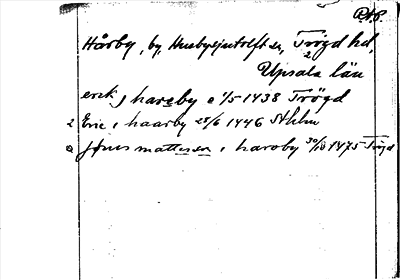 R.A.P.
Hårby, by, Husbysjutolft sn, Trögd hd,
Upsala län
erik j hareby a 1/5 1438 Trögd
2 Eric i haarby 28/6 1446 Sthlm
a jøns mattesson i haroby 30/10 1475 Trögd